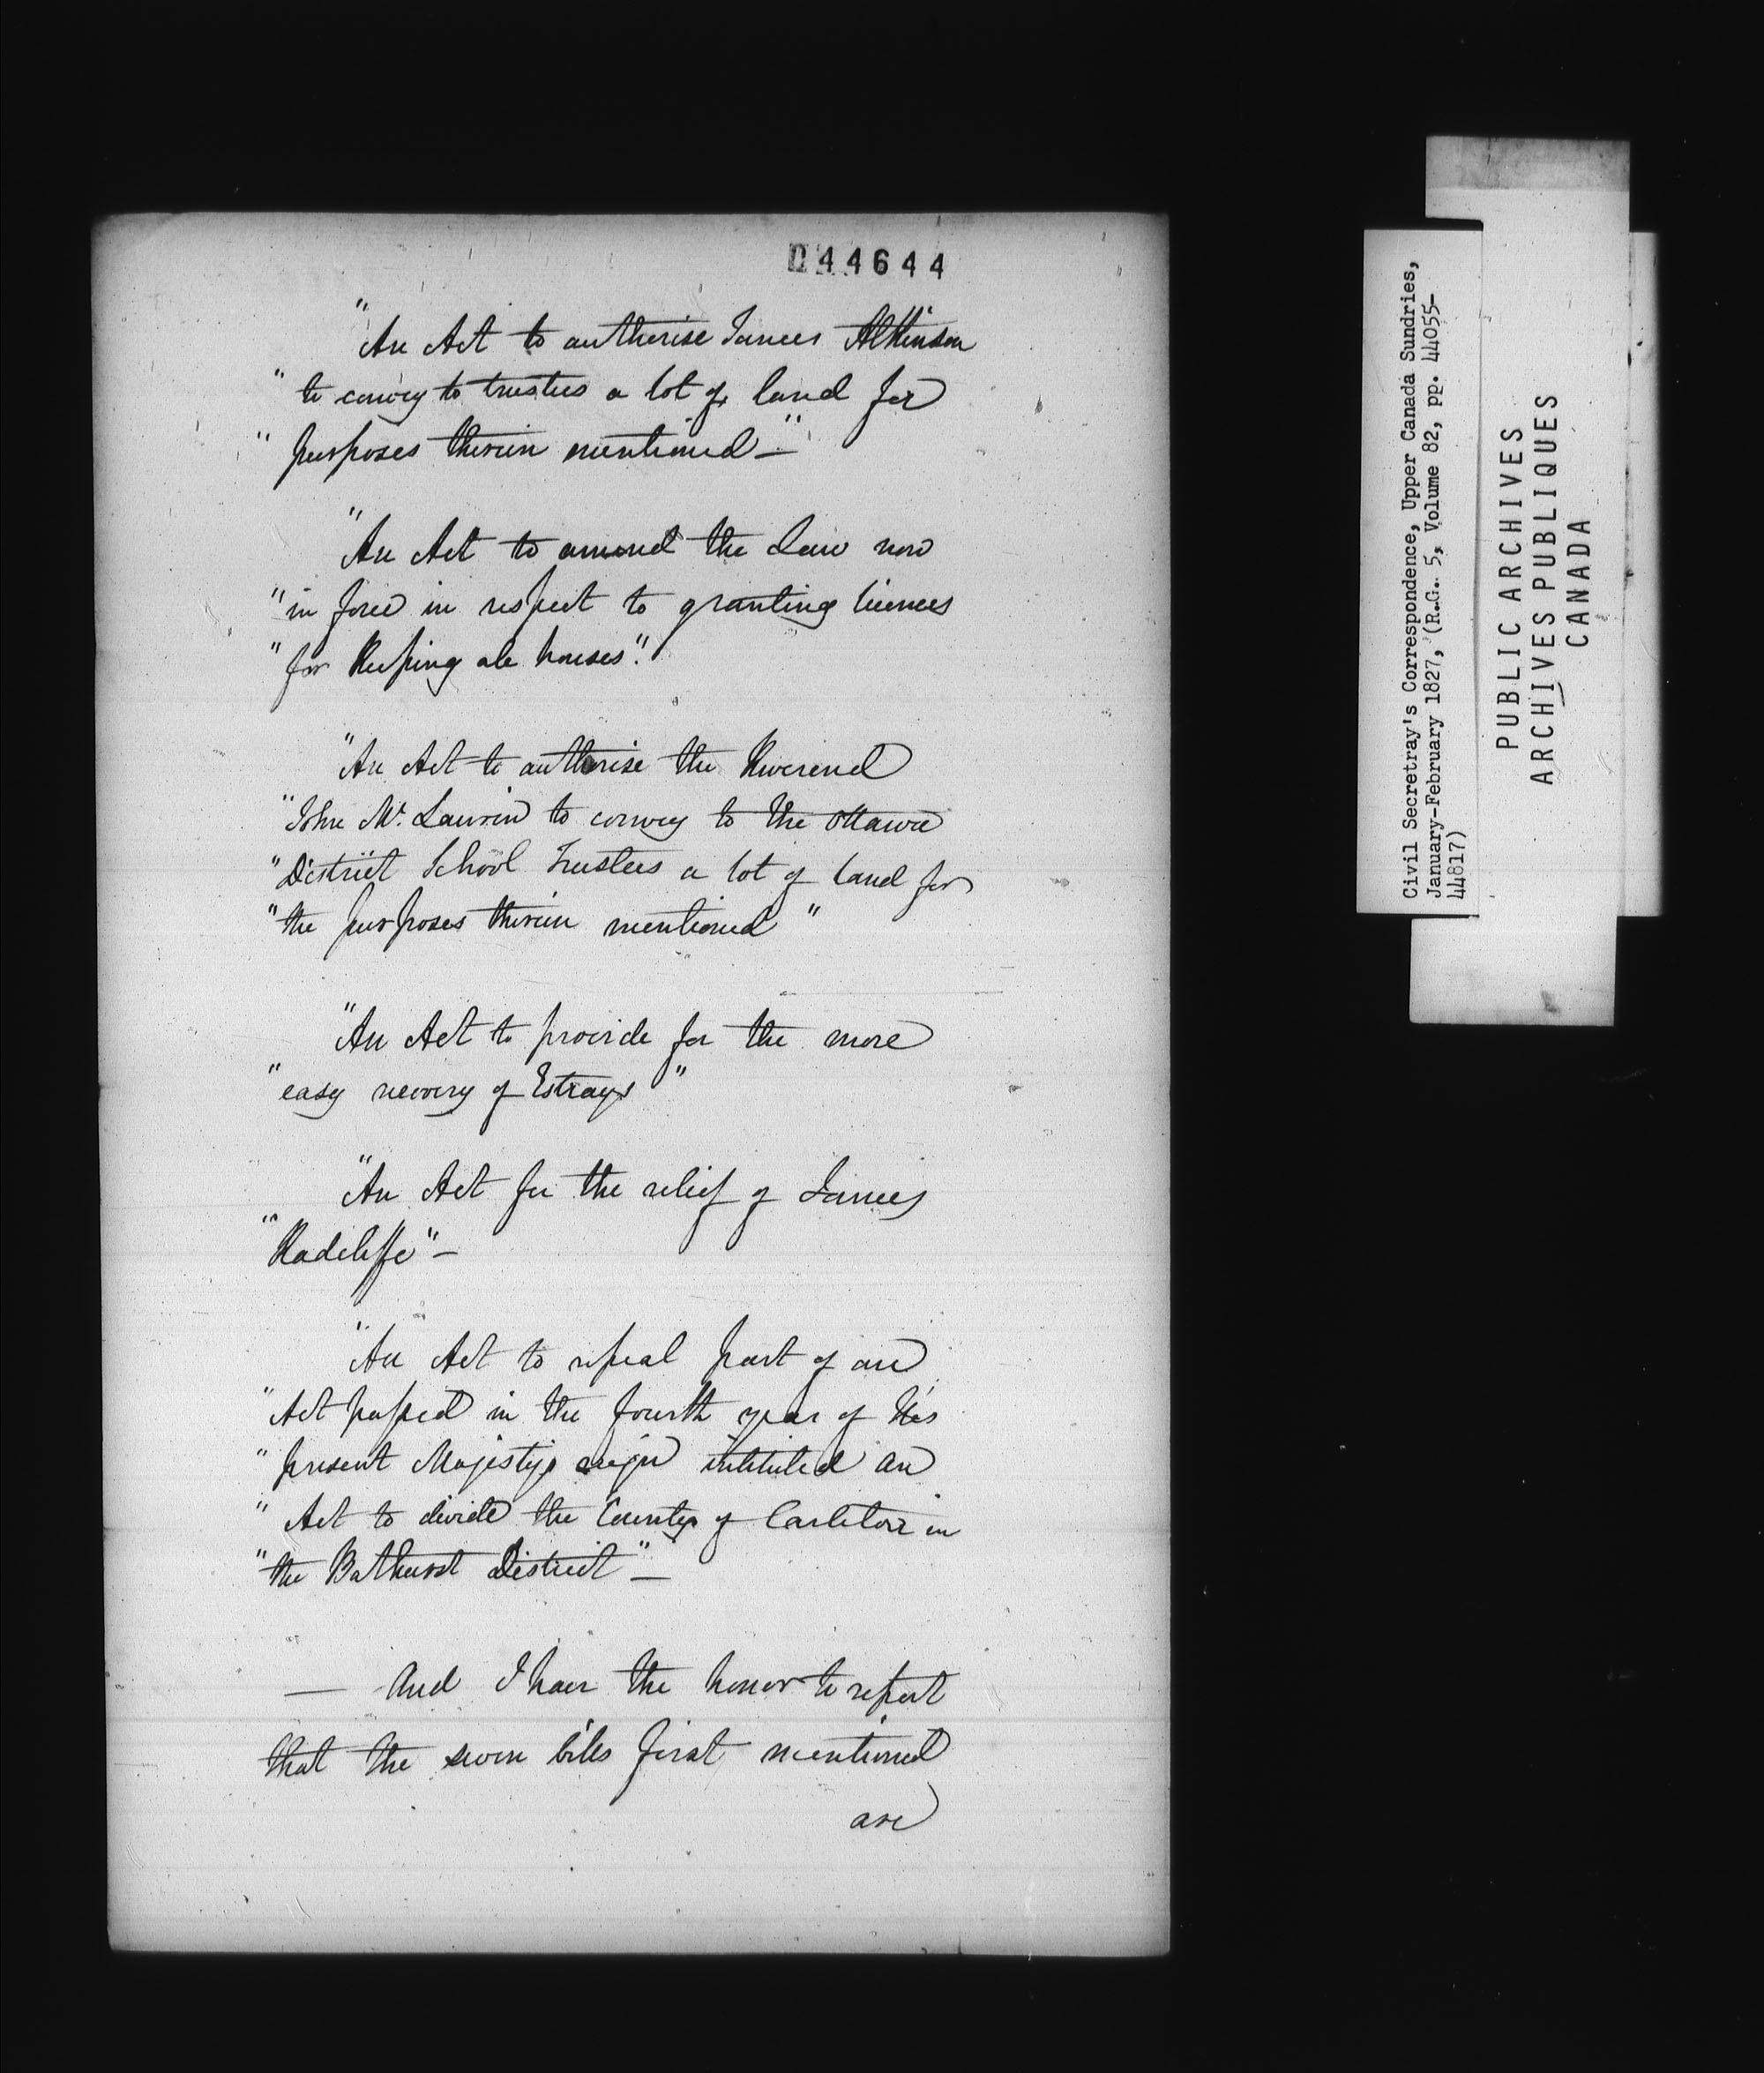 044644
"An Act to authorise James Atkinson
" to convey to trustees a lot of land for
" purposes therein mentioned — "
"An Act to amend the Law now
" in force in respect to granting licences
" for keeping ale houses".
"An Act to authorise the Reverend
"John Mc. Laurin to convey to the Ottawa
"District School Trustees a lot of land for
"the purposes therein mentioned "
"An Act to provide for the more
"easy recovery of Estrays "
"An Act for the relief of James
"Radcliffe" —
"An Act to repeal part of an
" Act passed in the fourth year of His
" present Majestys reign intituled an
" Act to divide the County of Carleton in
"the Bathurst District" —
— And I have the honor to report
that the seven bills first mentioned
are
Civil Secretray's Correspondence, Upper Canada Sundries,
January-February 1827, (R.G. 5, Volume 82, pp. 44055-
44817)
PUBLIC ARCHIVES
ARCHIVES PUBLIQUES
CANADA